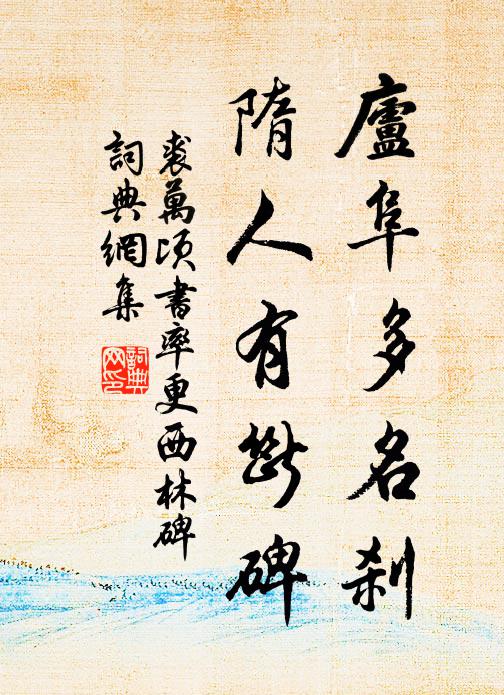 廬阜多名刹
隋人有斷碑
裘萬頃書率更西林碑
詞典網集
詞典
网印